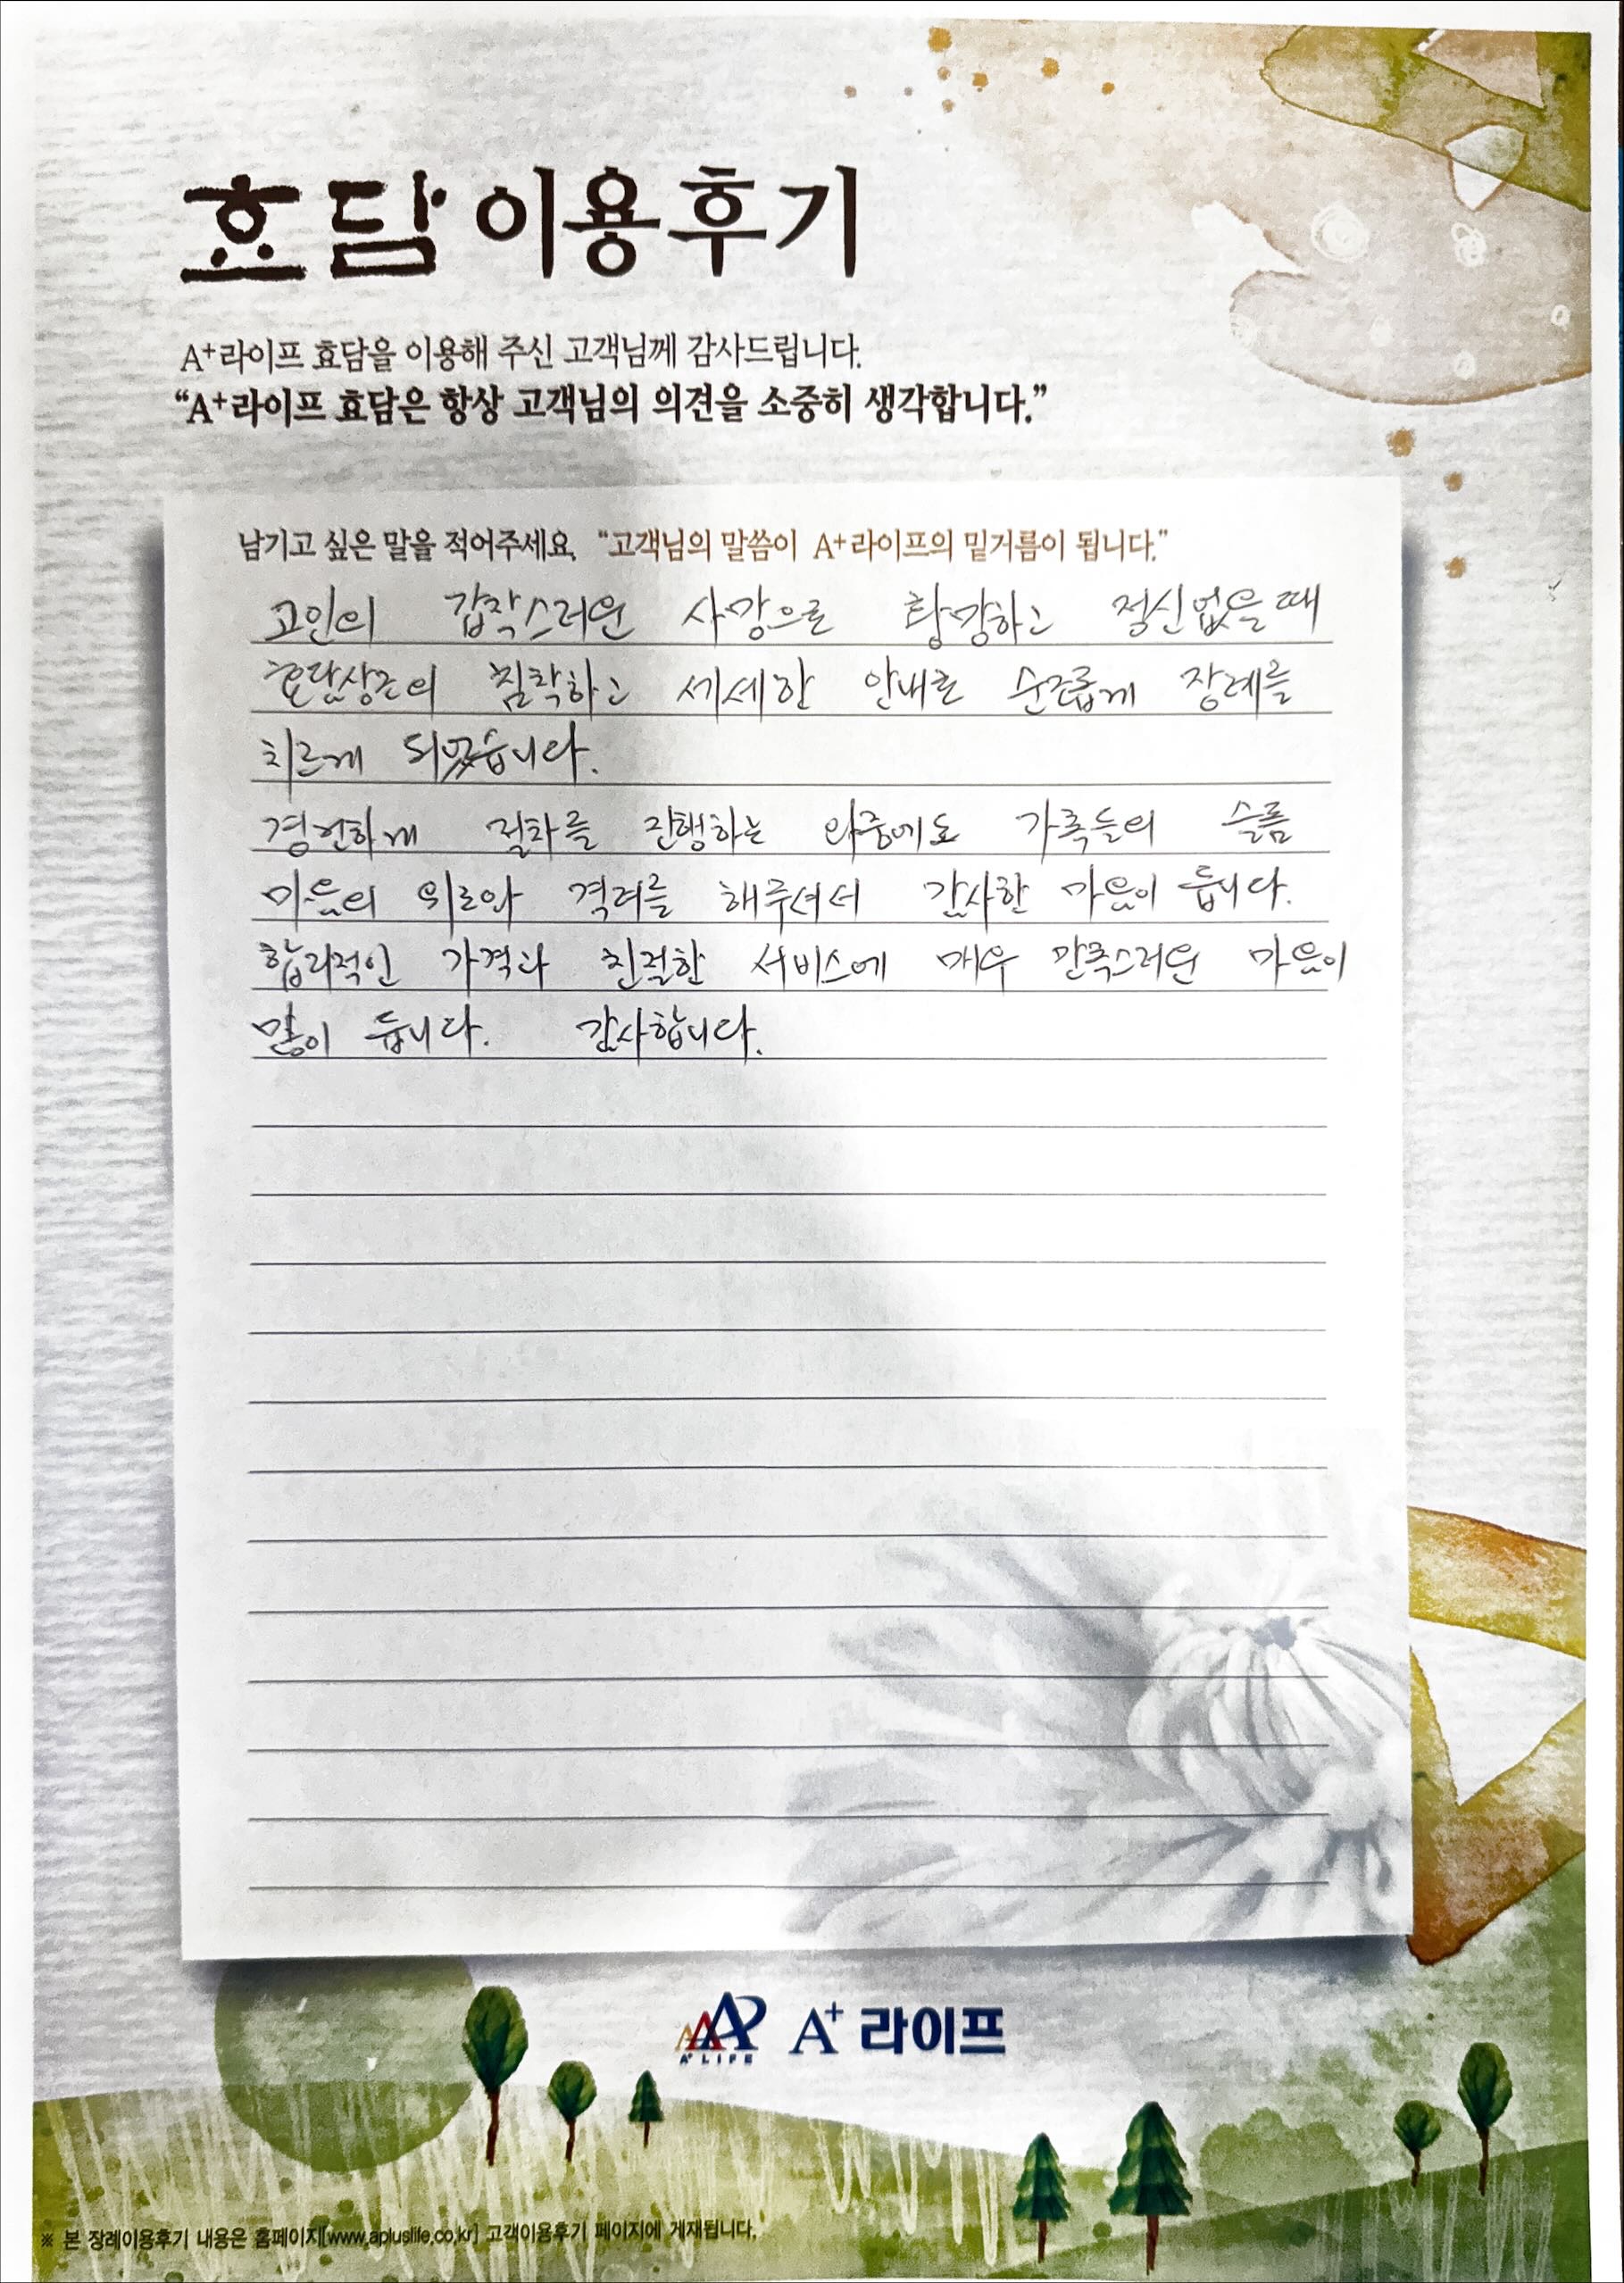 효담 이용후기
A+라이프 효담을 이용해 주신 고객님께 감사드립니다.
“A+라이프 효담은 항상 고객님의 의견을 소중히 생각합니다.”
남기고 싶은 말을 적어주세요. “고객님의 말씀이 A+라이프의 밑거름이 됩니다.”
고인의 갑작스러운 사망으로 황망하고 정신없을때
효담상조의 침착하고 세세한 안내로 순조롭게 장례를
치르게 되었습니다.
경건하게 절차를 진행하는 와중에도 가족들의 슬픔
마음의 위로와 격려를 해주셔서 감사한 마음이 듭니다.
합리적인 가격과 친절한 서비스에 매우 만족스러운 마음이
많이 듭니다. 감사합니다.
A+ LIFE A+ 라이프
※ 본 장례이용후기 내용은 홈페이지[www.apluslife.co.kr] 고객이용후기 페이지에 게재됩니다.